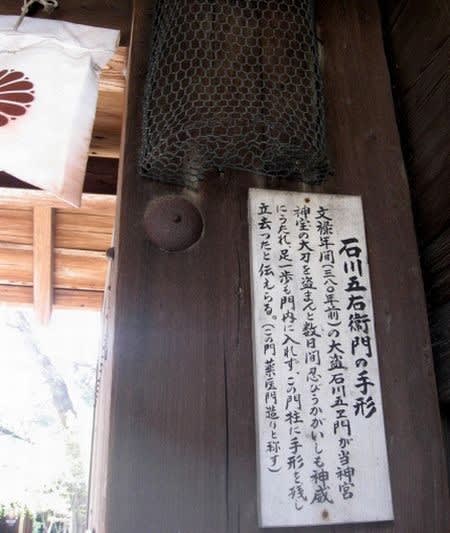 石川五右衛門の手形
文禄年間(三八〇年前)の大盗石川五ヱ門が当神宮
神宝の大刀を盗まんと数日間忍びうかがいしも神威
にうたれ、足一歩も門内に入れず、この門柱に手形を残し
立去ったと伝えらる。(この門薬医門造りと称す)